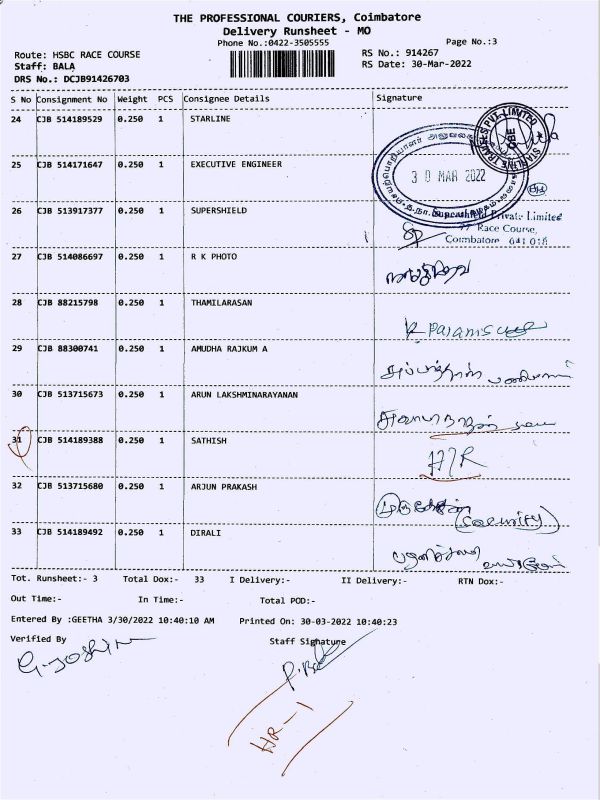 THE PROFESSIONAL COURIERS, Coimbatore
Delivery Runsheet - MO
Phone No.:0422-3505555
Page No.:3
Route: HSBC RACE COURSE
RS No.: 914267
Staff: BALA
RS Date: 30-Mar-2022
DRS No.: DCJB91426703
S No Consignment No Weight PCS Consignee Details Signature
24 CJB 514189529 0.250 1 STARLINE
25 CJB 514171647 0.250 1 EXECUTIVE ENGINEER
30 MAR 2022
26 CJB 513917377 0.250 1 SUPERSHIELD
Supershield Private Limited
Race Course,
Coimbatore 641 018
27 CJB 514086697 0.250 1 R K PHOTO
28 CJB 88215798 0.250 1 THAMILARASAN
29 CJB 88300741 0.250 1 AMUDHA RAJKUM A
30 CJB 513715673 0.250 1 ARUN LAKSHMINARAYANAN
31 CJB 514189388 0.250 1 SATHISH
32 CJB 513715680 0.250 1 ARJUN PRAKASH
(Security)
33 CJB 514189492 0.250 1 DIRALI
Tot. Runsheet:- 3 Total Dox:- 33 I Delivery:- II Delivery:- RTN Dox:-
Out Time:- In Time:- Total POD:-
Entered By :GEETHA 3/30/2022 10:40:10 AM Printed On: 30-03-2022 10:40:23
Verified By Staff Signature
HR-1